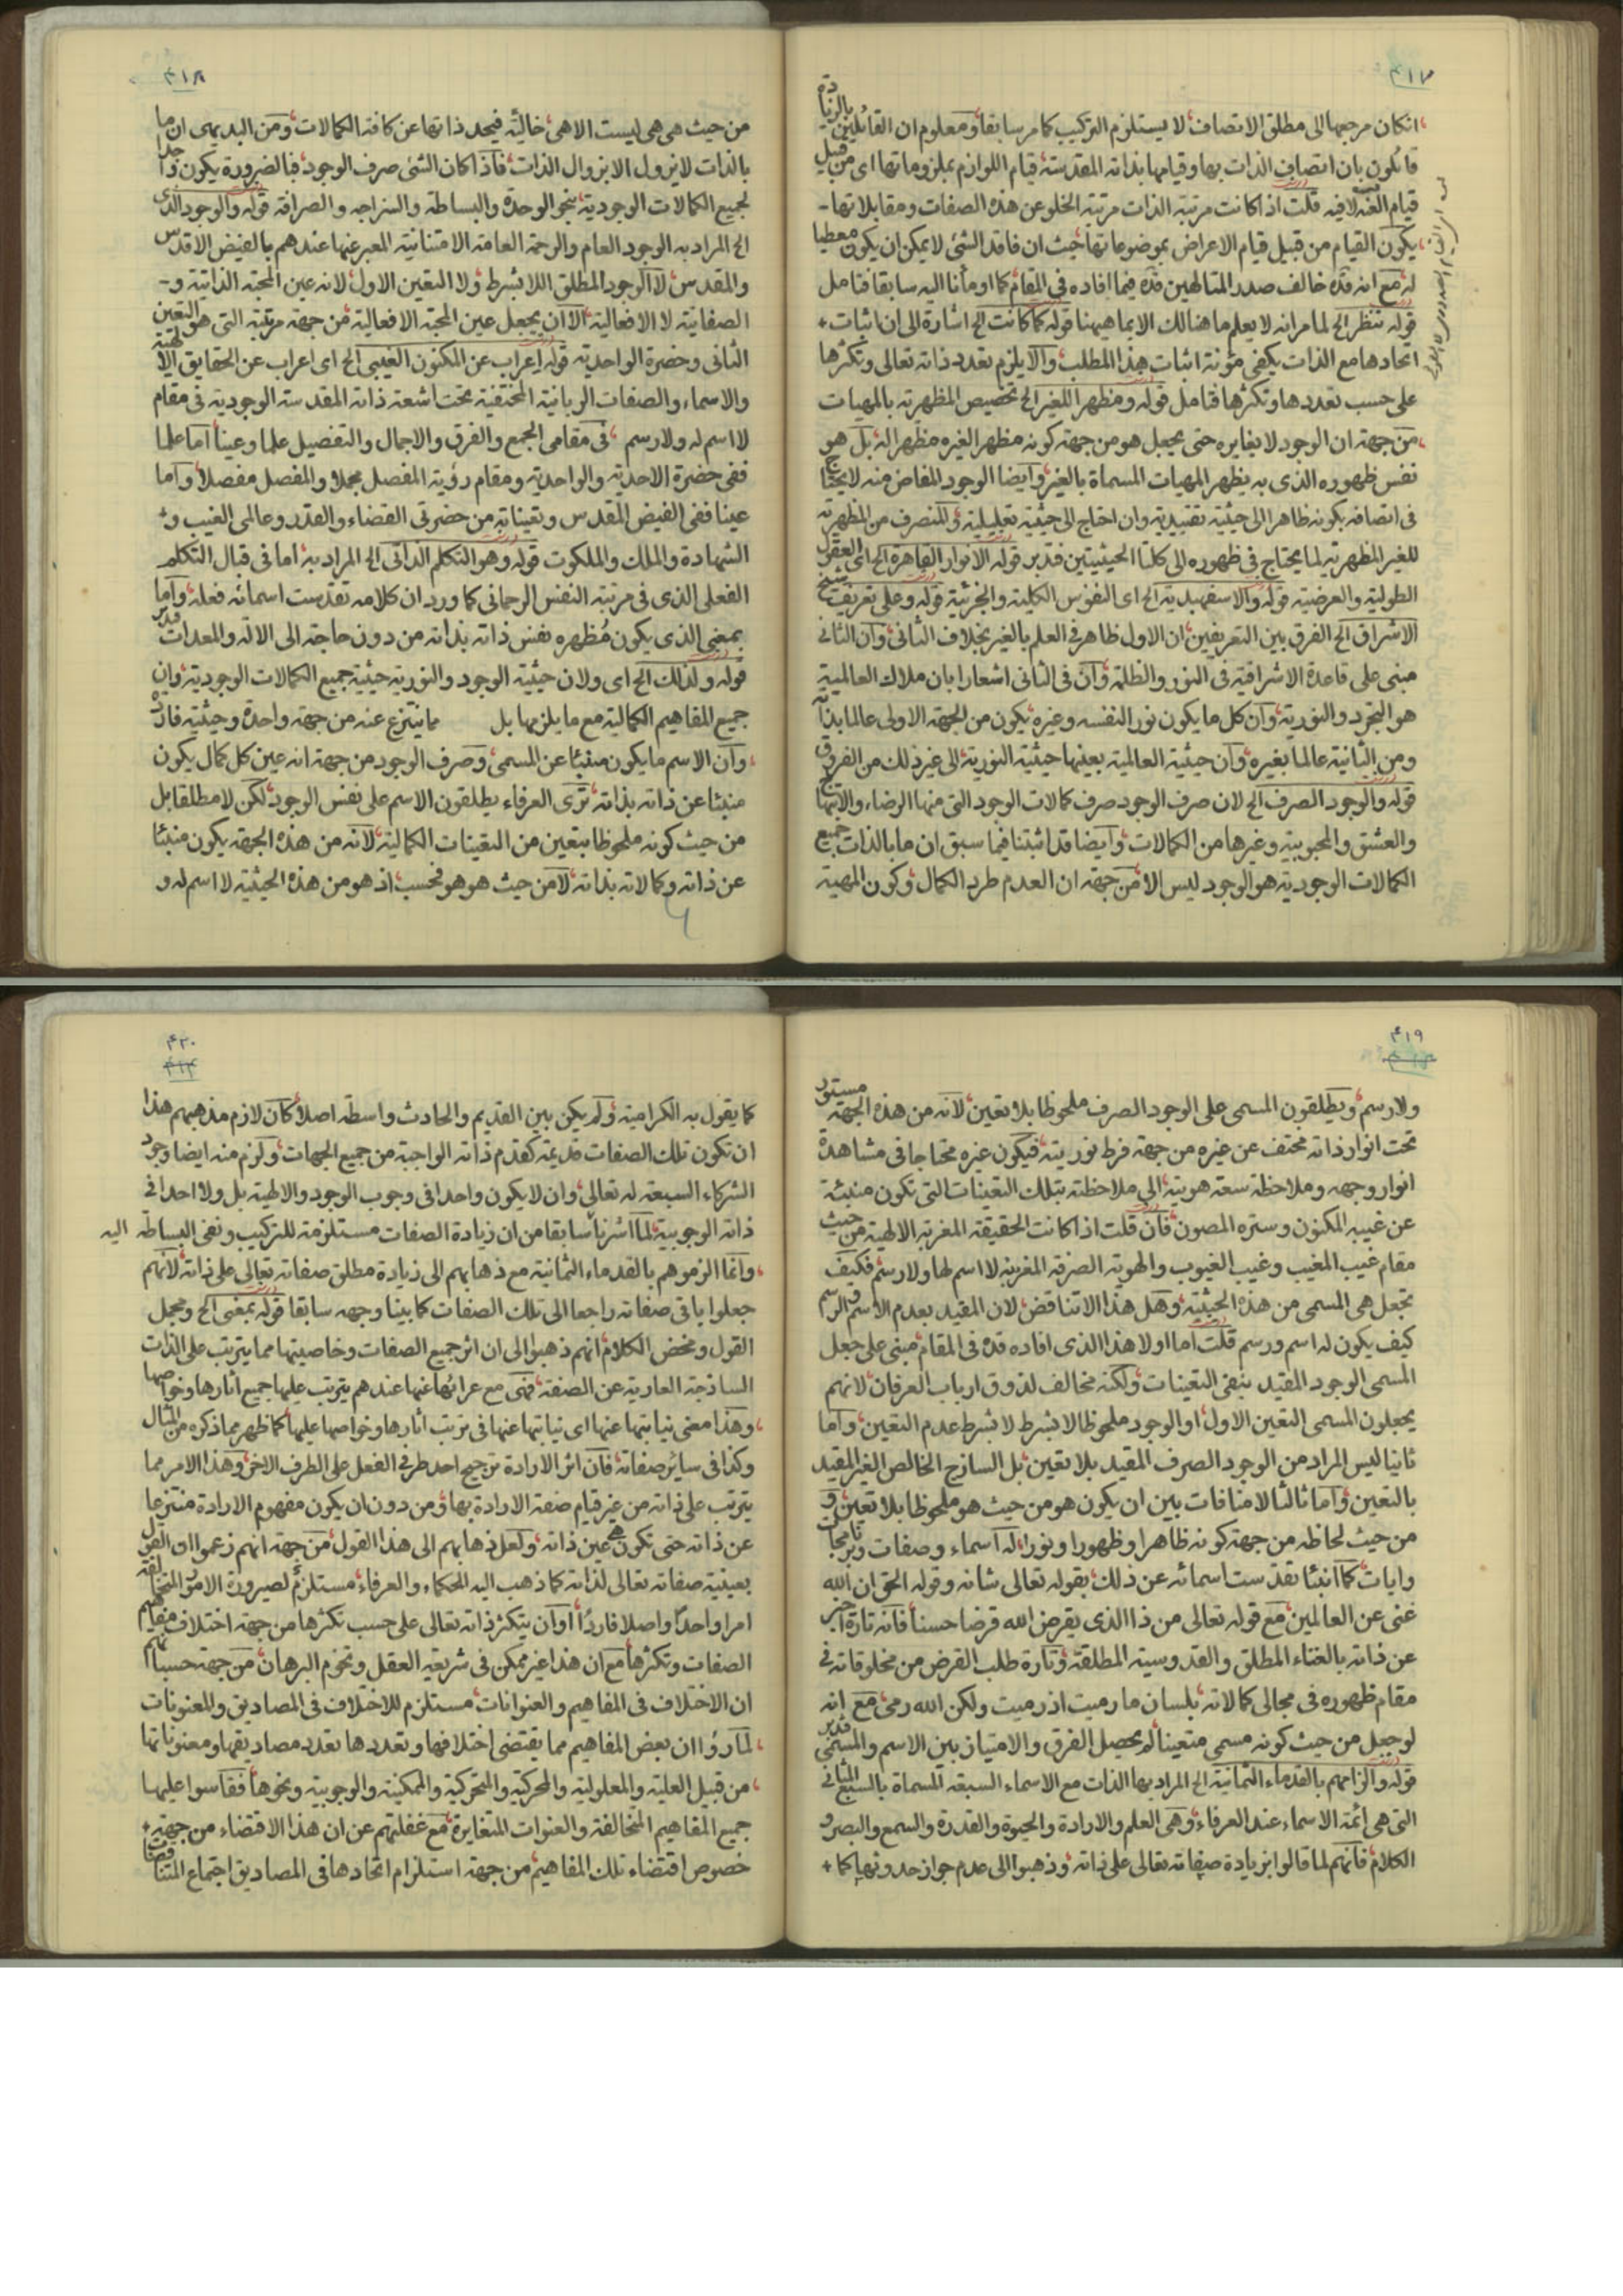 ۴۱۷
انکان مرجعها الی مطلق الاتصاف لا یستلزم الترکیب کما مر سابقا و معلوم ان القائلین بالزیادة
قائلون بان اتصاف الذات بها و قیامها بذاته المقدسته قیام اللوازم بملزوماتها ای من قبیل
قیام الغنه لا فیه قلت اذا کانت مرتبته الذات مرتبته الخلو عن هذه الصفات و مقابلاتها -
یکون القیام من قبیل قیام الاعراض بموضوعاتها حیث ان فاقد الشئ لا یمکن ان یکون معطیا
له مع انه قده خالف صدر المتالهین قده فیما افاده فی المقام کما اومأنا الیه سابقا فتامل
قوله تنظر الخ لما مر انه لا یعلم ما هنالک الا بما هیهنا قوله کما کانت الخ اشارة الی ان اثبات +
اتحادها مع الذات یکفی مؤنة اثبات هذا المطلب و الا یلزم تعدد ذاته تعالی و تکثرها
علی حسب تعددها و تکثرها فتامل قوله و مظهرا للغیر الخ تخصیص المظهرته بالمهیات
من جهته ان الوجود لا یغایره حتی یجعل هو من جهته کونه مظهرا لغیره مظهرا له بل هو
نفس ظهوره الذی به یظهر المهیات المسماة بالغیر و ایضا الوجود المفاض منه لا یحتاج
فی اتصافه بکونه ظاهرا الی حیثیته تقییدیته و ان احتاج الی حیثیته تعلیلیته و للتصرف من المظهرته
للغیر المظهرته لما یحتاج فی ظهوره الی کلتا الحیثیتین فتدبر قوله الانوار القاهرة الخ ای العقول
الطولیته و العرضیته قوله و الاسفهبدیته الخ ای النفوس الکلیته و الجزئیته قوله و علی تعریف شیخ
الاشراق الخ الفرق بین التعریفین ان الاول ظاهر فی العلم بالغیر بخلاف الثانی و ان الثانی
مبنی علی قاعدة الاشراقیته فی النور و الظلمته و ان فی الثانی اشعارا بان ملاک العالمیته
هو التجرد و النوریته و ان کل ما یکون نورا لنفسه و غیره یکون من الجهته الاولی عالما بذاته
و من الثانیته عالما بغیره و ان حیثیته العالمیته بعینها حیثیته النوریته الی غیر ذلک من الفروق
قوله و الوجود الصرف الخ لان صرف الوجود صرف کمالات الوجود التی منها الرضاء و الابتهاج
و العشق و المحبوبیته و غیرها من الکمالات و ایضا قد اثبتنا فیما سبق ان ما بالذات جمیع
الکمالات الوجودیته هو الوجود لیس الا من جهته ان العدم طرد الکمال و کون المهیته
۴۱۸
من حیث هی هی لیست الا هی خالیته فیجد ذاتها عن کافته الکمالات و من البدیهی ان ما
بالذات لا یزول الا بزوال الذات فاذا کان الشئی صرف الوجود فبالضرورة یکون واجدا
لجمیع الکمالات الوجودیته بنحو الوحدة و البساطته و السزاجه و الصرافته قوله و الوجود الذی
الخ المراد به الوجود العام و الرحمته العامته الامتنانیته المعبر عنها عندهم بالفیض الاقدس
و المقدس لا الوجود المطلق اللابشرط و لا التعین الاول لانه عین المحبته الذاتیته و -
الصفاتیته لا الافعالیته الا ان یجعل عین المحبته الافعالیته من جهته مرتبته التی هو التعین
الثانی و حضرة الواحدیته قوله اعراب عن المکنون الغیبی الخ ای اعراب عن الحقایق الالهیته
و الاسماء و الصفات الربانیته المختفیته تحت اشعته ذاته المقدسته الوجودیته فی مقام
لا اسم له و لا رسم فی مقامی الجمع و الفرق و الاجمال و التفصیل علما و عینا اما علما
ففی حضرة الاحدیته و الواحدیته و مقام رؤیته المفصل مجملا و المفصل مفصلا و اما
عینا ففی الفیض المقدس و تعیناته من حضرتی القضاء و القدر و عالمی الغیب و +
الشهادة و الملک و الملکوت قوله و هو التکلم الذاتی الخ المراد به اما فی قبال التکلم
الفعلی الذی فی مرتبته النفس الرحمانی کما ورد ان کلامه تقدست اسمائه فعله و اما
بمعنی الذی یکون مظهره نفس ذاته بذاته من دون حاجته الی الالة و المعدات فتدبر
قوله و لذلک الخ ای و لان حیثیته الوجود و النوریته حیثیته جمیع الکمالات الوجودیته و ان
جمیع المفاهیم الکمالیته مع ما یلزمها بل مما ینتزع عنه من جهته واحدة و حیثیته فاردة
و ان الاسم ما یکون منبئا عن المسمی و صرف الوجود من جهته انه عین کل کمال یکون
منبئا عن ذاته بذاته تری العرفاء یطلقون الاسم علی نفس الوجود لکن لا مطلقا بل
من حیث کونه ملحوظا بتعین من التعینات الکمالیته لانه من هذه الجهته یکون منبئا
عن ذاته و کمالاته بذاته لا من حیث هو هو فحسب اذ هو من هذه الحیثیته لا اسم له و
۴۱۹
و لا رسم و یطلقون المسمی علی الوجود الصرف ملحوظا بلا تعین لانه من هذه الجهته مستور
تحت انوار ذاته مختف عن غیره من جهته فرط نوریته فیکون غیره محتاجا فی مشاهدة
انوار وجهه و ملاحظته سعته هویته الی ملاحظته بتلک التعینات التی تکون منبئته
عن غیبه المکنون و ستره المصون فان قلت اذا کانت الحقیقته المغربته الالهیته من حیث
مقام غیب المغیب و غیب الغیوب و الهویته الصرفته المغربته لا اسم لها و لا رسم فکیف
تجعل هی المسمی من هذه الحیثیته و هل هذا الا تناقض لان المقید بعدم الاسم و الرسم
کیف یکون له اسم و رسم قلت اما اولا هذا الذی افاده قده فی المقام مبنی علی جعل
المسمی الوجود المقید بنفی التعینات و لکنه مخالف لذوق ارباب العرفان لانهم
یجعلون المسمی التعین الاول او الوجود ملحوظا لا بشرط لا بشرط عدم التعین و اما
ثانیا لیس المراد من الوجود الصرف المقید بلا تعین بل الساذج الخالص الغیر المقید
بالتعین و اما ثالثا لا منافات بین ان یکون هو من حیث هو ملحوظا بلا تعین و
من حیث لحاظه من جهته کونه ظاهرا و ظهورا و نورا له اسماء و صفات و ترجمات
و ایات کما انبئا تقدست اسمائه عن ذلک بقوله تعالی شانه و قوله الحق ان الله
غنی عن العالمین مع قوله تعالی من ذا الذی یقرض الله قرضا حسنا فانه تارة اخبر
عن ذاته بالغناء المطلق و القدوسیته المطلقته و تارة طلب القرض من مخلوقاته فی
مقام ظهوره فی مجالی کمالاته بلسان ما رمیت اذ رمیت ولکن الله رمی مع انه
لو جعل من حیث کونه مسمی متعینا لم یحصل الفرق و الامتیاز بین الاسم و المسمی فتدبر
قوله و الزامهم بالقدماء الثمانیته الخ المراد بها الذات مع الاسماء السبعته المسماة بالسبع المثانی
التی هی ائمته الاسماء عند العرفاء و هی العلم و الارادة و الحیوة و القدرة و السمع و البصر و
الکلام فانهم لما قالوا بزیادة صفاته تعالی علی ذاته و ذهبوا الی عدم جواز حدوثها کما +
۴۲۰
کما یقول به الکرامیته و لم یکن بین القدیم و الحادث واسطته اصلا کان لازم مذهبهم هذا
ان تکون تلک الصفات قدیمته کقدم ذاته الواجبته من جمیع الجهات و لزم منه ایضا وجود
الشرکاء السبعته له تعالی و ان لا یکون واحدا فی وجوب الوجود و الالهیته بل و لا احدا فی
ذاته الوجوبیته لما اشرنا سابقا من ان زیادة الصفات مستلزمته للترکیب و نفی البساطته الیه
و انما الزموهم بالقدماء الثمانیته مع ذهابهم الی زیادة مطلق صفاته تعالی علی ذاته لانهم
جعلوا باقی صفاته راجعا الی تلک الصفات کما بینا وجهه سابقا قوله بمعنی الخ و مجمل
القول و مخض الکلام انهم ذهبوا الی ان اثر جمیع الصفات و خاصیتها مما یترتب علی الذات
الساذجته العاریته عن الصفته فهی مع عرائها عنها عندهم یترتب علیها جمیع اثارها و خواصها
و هذا معنی نیابتها عنها ای نیابتها عنها فی ترتب اثارها و خواصها علیها کما ظهر مما ذکره من المثال
و کذا فی سائر صفاته فان اثر الارادة ترجیح احد طرفی الفعل علی الطرف الاخر و هذا الامر مما
یترتب علی ذاته من غیر قیام صفته الارادة بها و من دون ان یکون مفهوم الارادة منتزعا
عن ذاته حتی تکون هی عین ذاته و لعل ذهابهم الی هذا القول من جهته انهم زعموا ان القول
بعینیته صفاته تعالی لذاته کما ذهب الیه الحکماء و العرفاء مستلزم لصیرورة الامور المتخالفته
امرا واحدا و اصلا فاردا او ان یتکثر ذاته تعالی علی حسب تکثرها من جهته اختلاف مفاهیم
الصفات و تکثرها مع ان هذا غیر ممکن فی شریعته العقل و تخوم البرهان من جهته حسبانهم
ان الاختلاف فی المفاهیم و العنوانات مستلزم للاختلاف فی المصادیق و المعنونات
لما رؤا ان بعض المفاهیم مما یقتضی اختلافها و تعددها تعدد مصادیقها و معنوناتها
من قبیل العلیته و المعلولیته و المحرکیته و المتحرکیته و الممکنیته و الوجوبیته و نحوها فقاسوا علیها
جمیع المفاهیم المتخالفته و العنوات المتغایرة مع غفلتهم عن ان هذا الاقتضاء من جهته +
خصوص اقتضاء تلک المفاهیم من جهته استلزام اتحادها فی المصادیق اجتماع المتناقضات